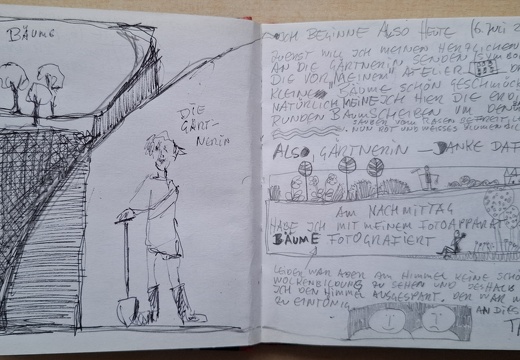 BÄUME
DIE
GÄRT-
NERIN
ICH BEGINNE ALSO HEUTE (6. JULI 2
ZUERST WILL ICH MEINEN HERZLICHEN
AN DIE GÄRTNERIN SENDEN
DIE VOR „MEINEM" ATELIER
KLEINE BÄUME SCHÖN GESCHMÜCK
NATÜRLICH MEINE ICH HIER DIE
RUNDEN BAUMSCHEIBEN UM DEN
NUN ROT UND WEISSES BLUMEN
ALSO, GÄRTNERIN — DANKE DAF
AM NACHMITTAG
HABE ICH MIT MEINEM FOTOAPPARAT
BÄUME FOTOGRAFIERT
LEIDER WAR ABER AM HIMMEL KEINE SCHÖ
WOLKENBILDUNG ZU SEHEN UND DESHALB
ICH DEN HIMMEL AUSGESPART. DER WAR M
ZU EINTÖNIG
AN DIES